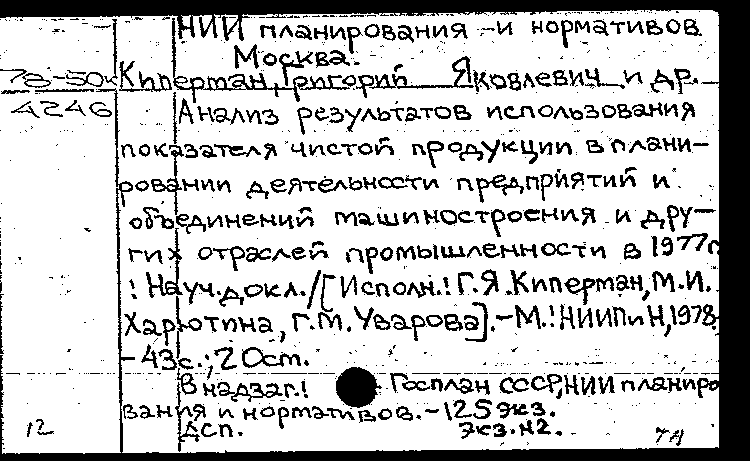 НИИ планирования и нормативов
Москва.
78-50к Киперман, Григорий Яковлевич и др.
4246 Анализ результатов использования
показателя чистой продукции в плани-
ровании деятельности предприятий и
объединений машиностроения и дру-
гих отраслей промышленности в 1977г
: Науч.докл./[Исполн.: Г.Я.Киперман, М.И.
Харютина, Г.М.Уварова].-М.: НИИПиН, 1978.
-43с.; 20см.
В надзаг.: Госплан СССР, НИИ планиро
вания и нормативов.-125 экз.
12 ДСП. Экз.N2.